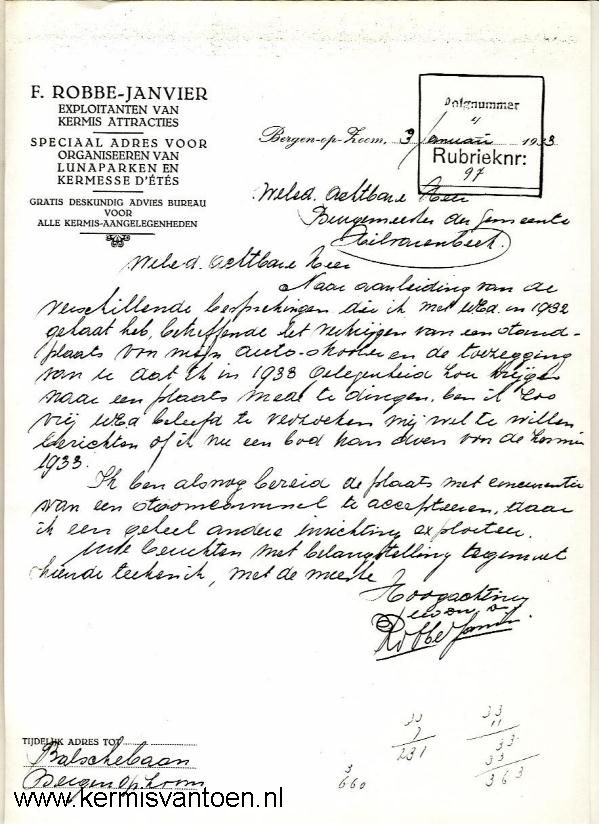 F. ROBBE-JANVIER
EXPLOITANTEN VAN
KERMIS ATTRACTIES
SPECIAAL ADRES VOOR
ORGANISEEREN VAN
LUNAPARKEN EN
KERMESSE D'ÉTÉS
GRATIS DESKUNDIG ADVIES BUREAU
VOOR
ALLE KERMIS-AANGELEGENHEDEN
Volgnummer
4
Rubrieknr:
97
Bergen-op-Zoom, 3 Januari 1933
Weled. Achtbare Heer
Burgemeester der Gemeente
Hilvarenbeek.
Weled. Achtbare Heer
Naar aanleiding van de
verschillende besprekingen die ik met UEd. in 1932
gehad heb, betreffende het verkrijgen van een stand-
plaats van mijn auto-skooter en de toezegging
van U dat ik in 1933 gelegenheid zou krijgen
naar een plaats mede te dingen, ben ik zoo
vrij UEd beleefd te verzoeken mij wel te willen
berichten of ik nu een bod kan doen voor de kermis
1933.
Ik ben alsnog bereid de plaats met concurrentie
van een stoomcarousel te accepteeren, daar
ik een geheel andere inrichting exploiteer.
Uwe berichten met belangstelling tegemoet
ziende teeken ik, met de meeste
Hoogachting
Robbe Janvier
TIJDELIJK ADRES TOT
Balschebaan
Bergen op Zoom
33
7
231
33
11
33
33
363
3
660
www.kermisvantoen.nl